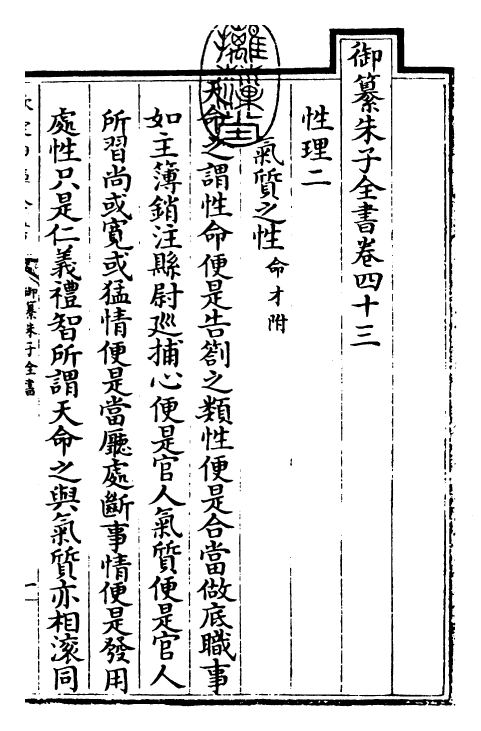 御纂朱子全書卷四十三
性理二
氣質之性 命才附
天命之謂性命便是告劄之類性便是合當做底職事
如主簿銷注縣尉巡捕心便是官人氣質便是官人
所習尚或寛或猛情便是當廳處斷事情便是發用
處性只是仁義禮智所謂天命之與氣質亦相滚同
御纂朱子全書
一